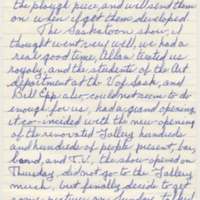 the plough piece, and will send them
on when if get them developed.
The Saskatoon show, I
thought went very well, we had a
real good time, Allan treated us
royaly, and the students of the Art
department at the U of Sask, and
Bill Epp also, could not seem to do
enough for us, had a grand opening,
it co-incided with the new opening
of the renovated Gallery, hundreds
and hundreds of people present, bar,
band, and T.V., the show opened on
Thursday, did not go to the Gallery
much, but finally decide to get
some pictures on Sunday, talked